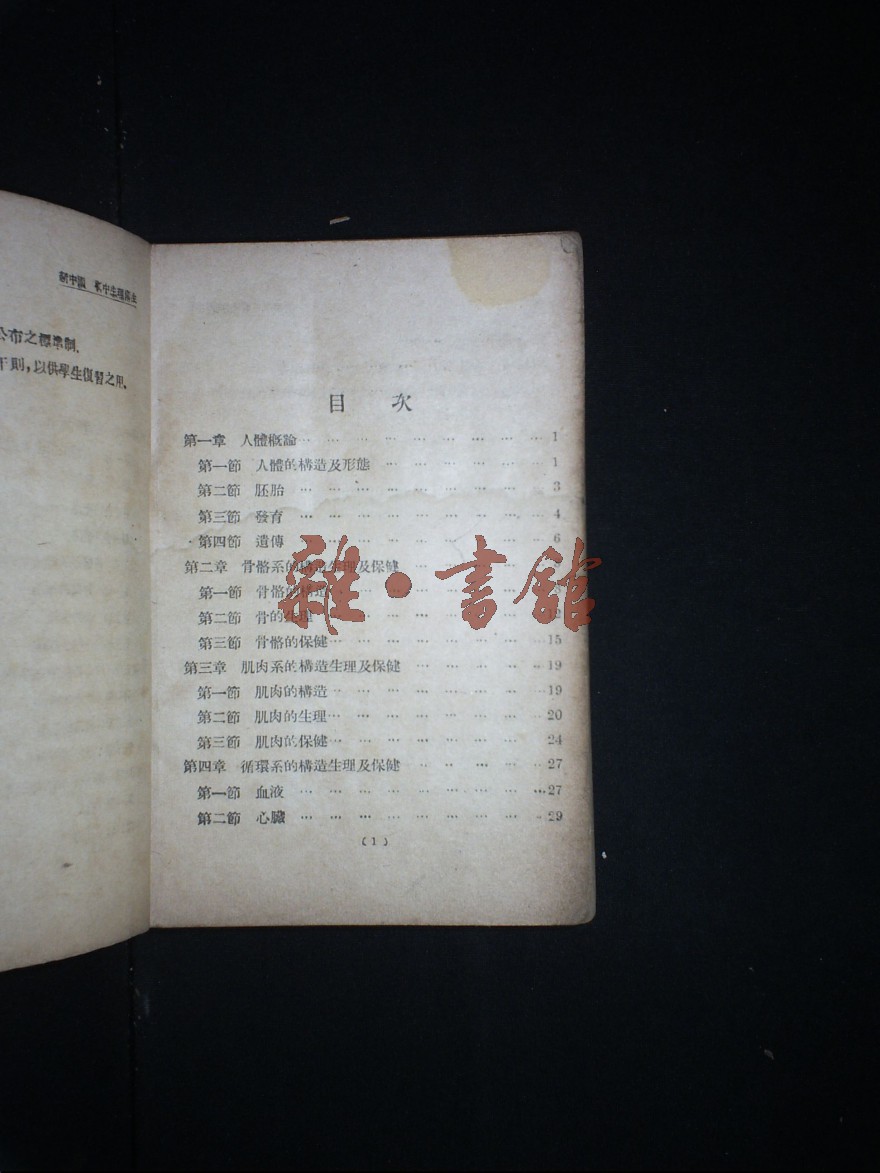 公布之標準制.
干則，以供學生復習之用.
目 次
第一章 人體概論 … … … … … … … … … 1
第一節 人體的構造及形態 … … … … … … 1
第二節 胚胎 … … … … … … … … … 3
第三節 發育 … … … … … … … … … 4
第四節 遺傳 … … … … … … … … … 6
第二章 骨骼系的構造生理及保健 … … … … …
第一節 骨骼的構造 … … … … … … …
第二節 骨的生理 … … … … … … … … 12
第三節 骨骼的保健 … … … … … … … … 15
第三章 肌肉系的構造生理及保健 … … … … … 19
第一節 肌肉的構造 … … … … … … … … 19
第二節 肌肉的生理 … … … … … … … … 20
第三節 肌肉的保健 … … … … … … … … 24
第四章 循環系的構造生理及保健 … … … … … 27
第一節 血液 … … … … … … … … … 27
第二節 心臟 … … … … … … … … … 29
(1)
雜·書館